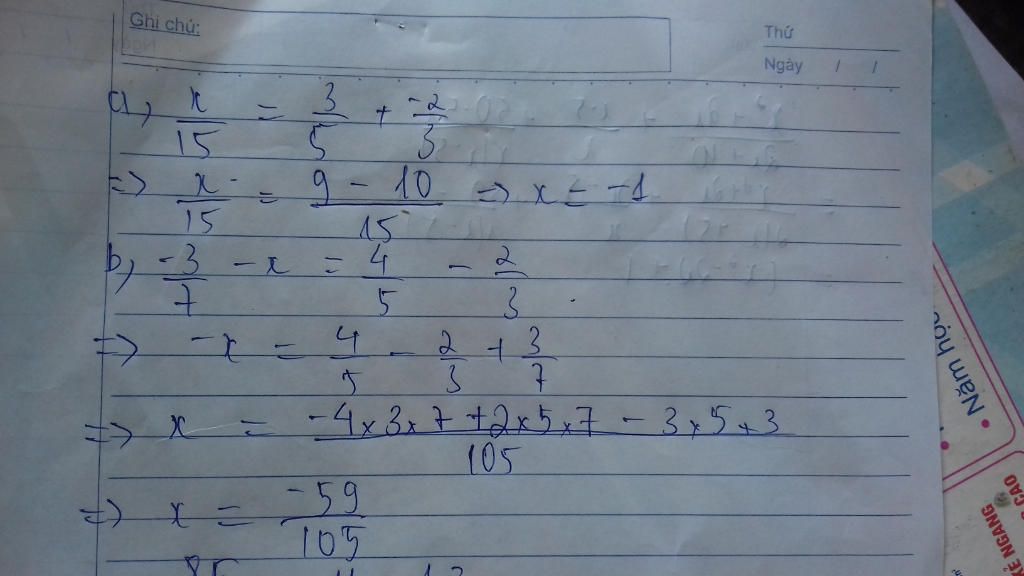 Ghi chú:
Thứ
Ngày / /
a, x/15 = 3/5 + -2/3
=> x/15 = 9 - 10/15 => x = -1
b, -3/7 - x = 4/5 - 2/3
=> -x = 4/5 - 2/3 + 3/7
=> x = -4x3x7 +2x5x7 - 3x5x3/105
=> x = -59/105
Năm học
KẺ NGANG
CAO